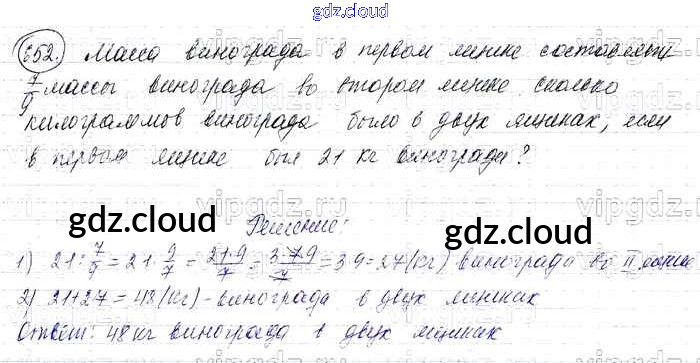 gdz.cloud
652. Масса винограда в первом ящике составляет
7/9 массы винограда во втором ящике. сколько
килограммов винограда было в двух ящиках, если
в первом ящике был 21 кг винограда?
Решение:
gdz.cloud
gdz.cloud
1) 21 : 7/9 = 21 · 9/7 = 21·9/7 = 3·7·9/7 = 3·9 = 27 (кг) винограда во II ящике
2) 21+27 = 48 (кг) - винограда в двух ящиках
Ответ: 48 кг винограда в двух ящиках
gdz.cloud